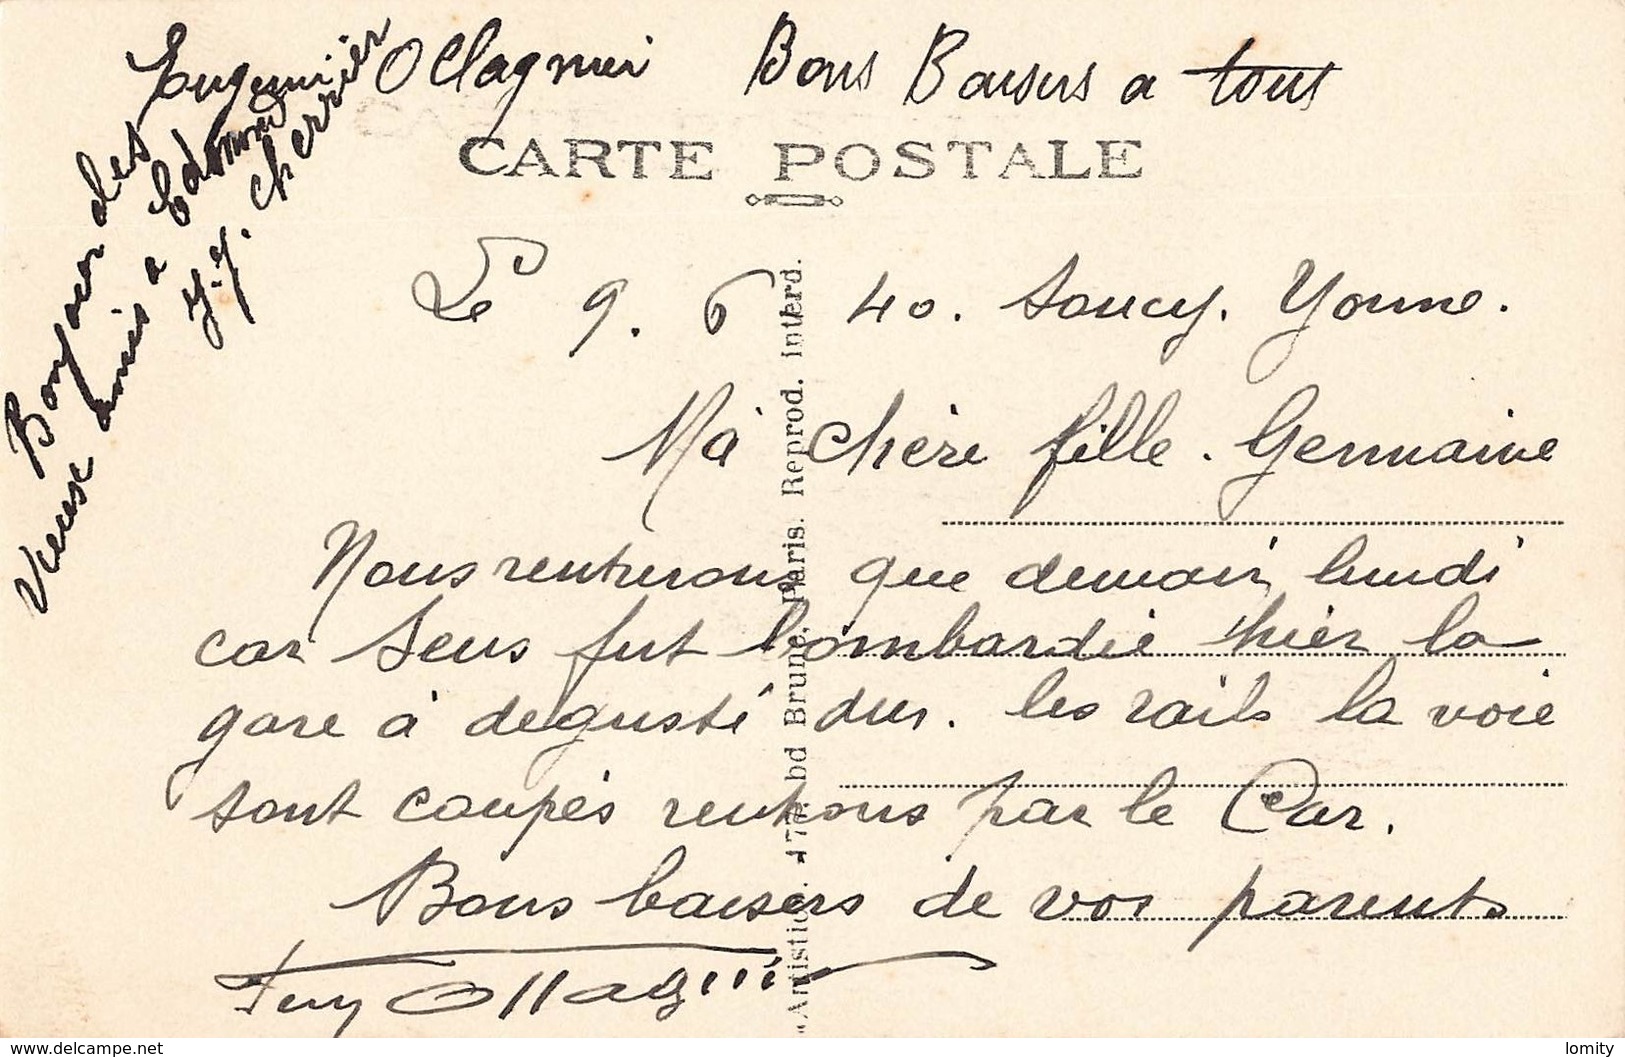 Eugenie Ollagnier Bons Baisers a tous
Bonjour des
Vieux amis a Edmond
J. J. Cherrier
CARTE POSTALE
Le 9. 6 40. Soucy. Yonne.
Ma chère fille. Germaine
Nous rentrerons que demain lundi
car Sens fut bombardée hier la
gare à dégusté dur. les rails la voie
sont coupés rentrons par le Car.
Bons baisers de vos parents
Ollagnier
"Artistic". 177, bd Brune, Paris. Reprod. interd.
www.delcampe.net
lomity